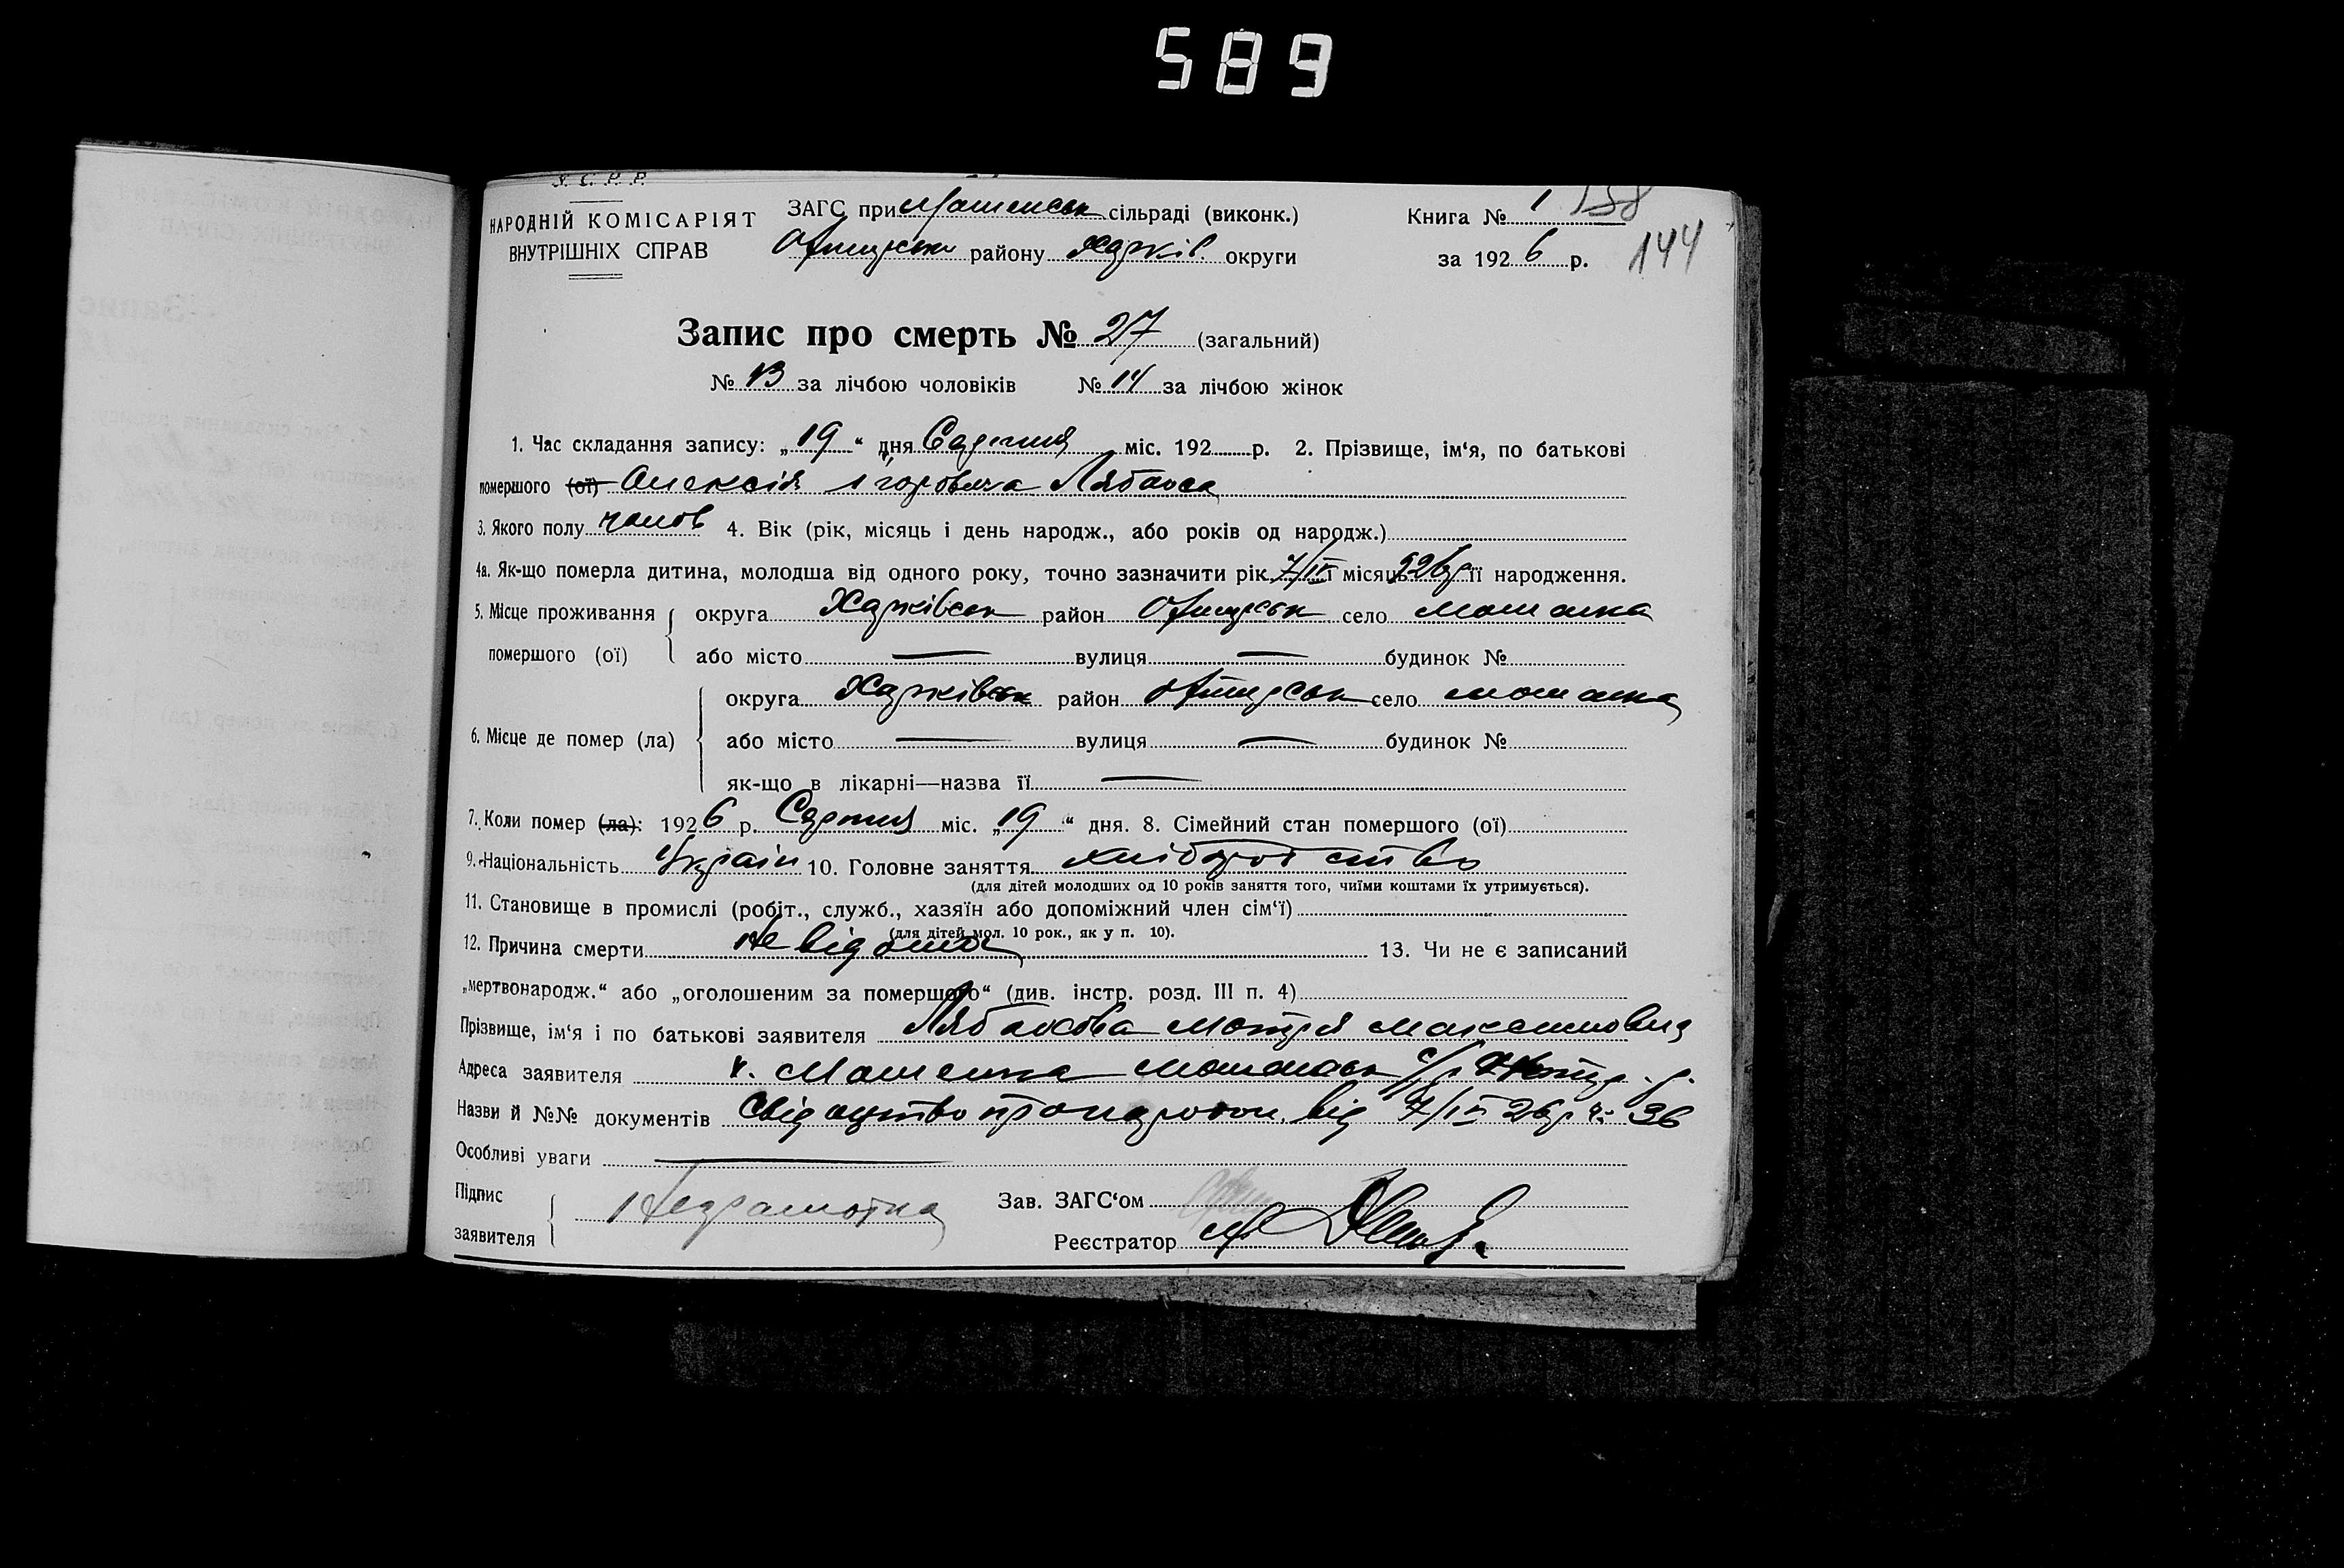 589
У. С. Р. Р.
НАРОДНІЙ КОМІСАРІЯТ
ВНУТРІШНІХ СПРАВ
ЗАГС при сільраді (виконк.)
району Харків. округи
Книга № 1 138
за 1926 р. 144
Запис про смерть № 27 (загальний)
№ 13 за лічбою чоловіків № 14 за лічбою жінок
1. Час складання запису: „19“ дня Серпня міс. 192 р. 2. Прізвище, ім‘я, по батькові
помершого (ої) Олексія
3. Якого полу чолов 4. Вік (рік, місяць і день народж., або років од народж.)
4а. Як-що померла дитина, молодша від одного року, точно зазначити рік 7/IV місяць 926р її народження.
5. Місце проживання округа Харківськ район село
помершого (ої) або місто — вулиця — будинок №
округа Харківськ район село
6. Місце де помер (ла) або місто — вулиця — будинок №
як-що в лікарні—назва її —
7. Коли помер (ла): 1926 р. Серпня міс. „19“ дня. 8. Сімейний стан помершого (ої)
9. Національність Україн 10. Головне заняття хліборобство
(для дітей молодших од 10 років заняття того, чиїми коштами їх утримується).
11. Становище в промислі (робіт., служб., хазяїн або допоміжний член сім‘ї)
(для дітей мол. 10 рок., як у п. 10).
12. Причина смерти Невідома 13. Чи не є записаний
„мертвонародж.“ або „оголошеним за помершого“ (див. інстр. розд. III п. 4)
Прізвище, ім‘я і по батькові заявителя Мотря Максимовна
Адреса заявителя с/р
Назви й №№ документів Свідоцтво про народж. від 7/IV 26р ч. 36
Особливі уваги —
Підпис
заявителя Неграмотна
Зав. ЗАГС‘ом
Реєстратор